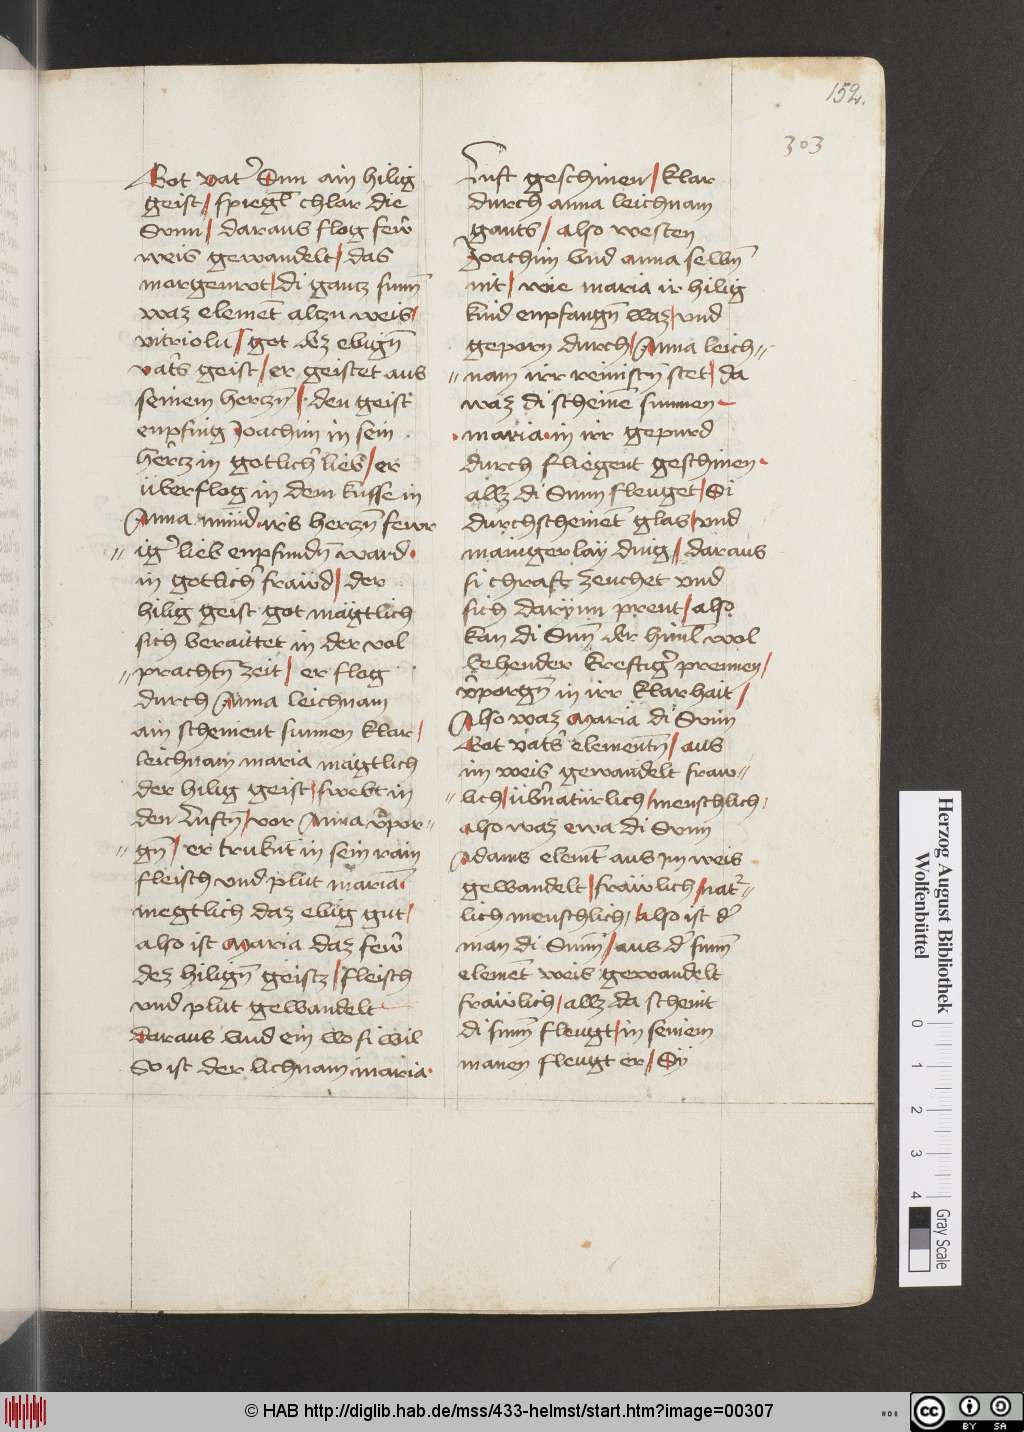 152.
303
Got vat͛ Sun ain hilig
geist / spiegl̄ chlar die
Sunn / daraus flog few̄r
weis gewandelt / das
margenrot / di gantz sunn̄
waz elemēt altzu weis /
vitriolū / got dez ebign̄
vat͛s geist / er geistet aus
seinem herczn̄ / den geist
enpfing Joachim in sein
hercz in gotlich͛ lieb / er
überflog in dem kusse in
Anna mund irs herczn̄ fewr
ig͛ lieb enpfundn̄ ward
in gotlich͛ fraẅd / der
hilig geist got mägtlich
sich beraittet in der vol
prachtn̄ zeit / er flog
durch Anna leichnam
ain scheinent sunnen klar /
leichnam maria mägtlich
der hilig geist / swebt in
den Lufftn̄ / vor Anna v͛por
gn̄ / er truknt in sein rain
fleisch vnd plut mariā
megtlich daz ebig gut /
also ist maria daz few͛
dez hilign̄ geistz / fleisch
vnd plut gewandelt
Daraus vnd ein wo si wil
So ist der lichnam maria
Luft geschinen / klar
durch anna leichnam
gants / also westen
Joachim vnd anna selbn̄
nit / wie maria ir hilig
kind enpfangn̄ waz / vnd
geporn durch / Anna leich
nam irr reinistn̄ stet / da
waz di scheinē sunnen
maria in irr gepurd
durch fliegent geschinen
allz di Sunn fleuget / Si
durchscheinet glas / vnd
mainger lay ding / daraus
si chraft zeuchet vnd
sich darynn prent / also
kan di Sunn̄ der himl̄ wol
behender kreftig͛ prennen /
v͛porgn̄ in irr klarhait /
Also waz Maria di Sunn
Got vat͛s elementn̄ / aus
im weis gewandelt fraw
lich / üb͛natürlich / menschlich /
also waz ewa di Sunn
Adams elemt̄ aus im weis
gewandelt / fraẅlich / nat͛
lich menschlich / Also ist d͛
man di Sunn̄ / aus d͛ sunn̄
elemēt weis gewandelt
fraẅlich / allz da scheint
di sunn̄ fleugt / in seinem
manen fleugt er / Sy
Herzog August Bibliothek
Wolfenbüttel
0 1 2 3 4
Gray Scale
© HAB http://diglib.hab.de/mss/433-helmst/start.htm?image=00307
HAB
cc BY SA